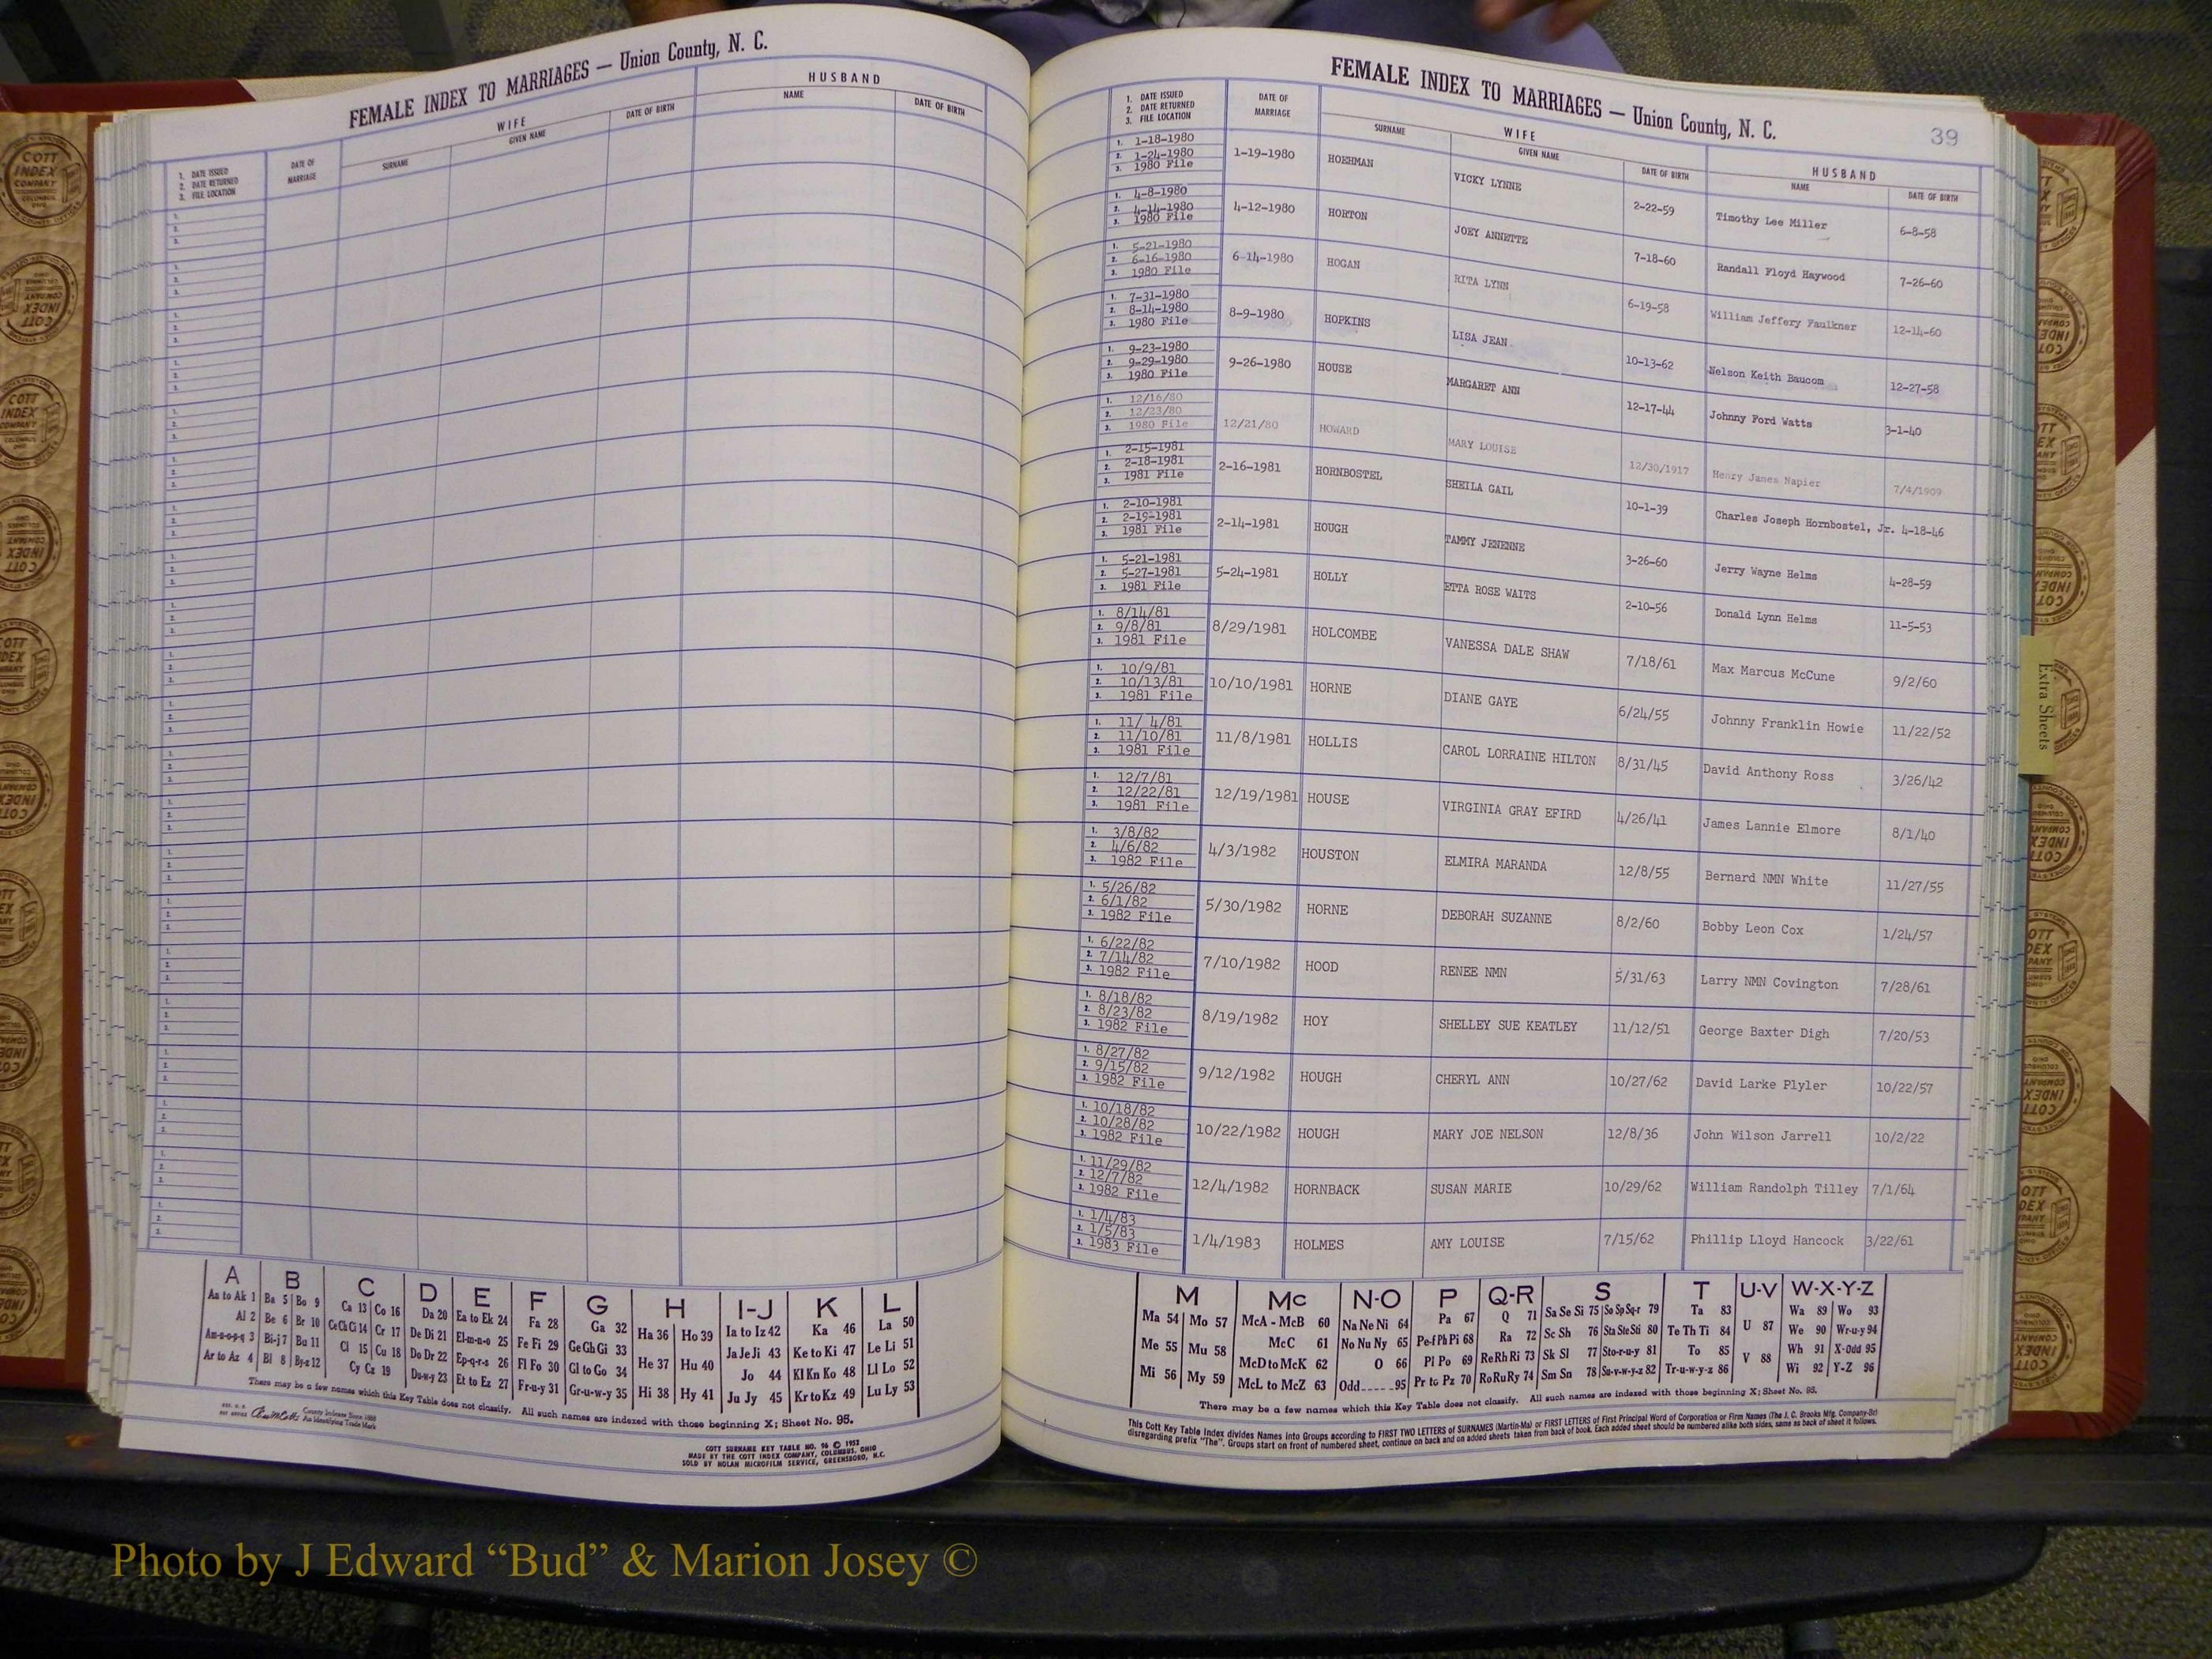 FEMALE INDEX TO MARRIAGES — Union County, N. C.
WIFE
HUSBAND
1. DATE ISSUED
2. DATE RETURNED
3. FILE LOCATION
DATE OF MARRIAGE
SURNAME
GIVEN NAME
DATE OF BIRTH
NAME
DATE OF BIRTH
A B C D E F G H I-J K L
Aa to Ak 1 Ba 5 Bo 9 Ca 13 Co 16 Da 20 Ea to Ek 24 Fa 28 Ga 32 Ha 36 Ho 39 Ia to Iz 42 Ka 46 La 50
Al 2 Be 6 Br 10 Ce Ch Ci 14 Cr 17 De Di 21 El-m-n-o 25 Fe Fi 29 Ge Gh Gi 33 He 37 Hu 40 Ja Je Ji 43 Ke to Ki 47 Le Li 51
Am-n-o-p-q 3 Bi-j 7 Bu 11 Cl 15 Cu 18 Do Dr 22 Ep-q-r-s 26 Fl Fo 30 Gl to Go 34 Hi 38 Hy 41 Jo 44 Kl Kn Ko 48 Ll Lo 52
Ar to Az 4 Bl 8 By-z 12 Cy Cz 19 Du-w-y 23 Et to Ez 27 Fr-u-y 31 Gr-u-w-y 35 Ju Jy 45 Kr to Kz 49 Lu Ly 53
There may be a few names which this Key Table does not classify. All such names are indexed with those beginning X; Sheet No. 95.
County Indexes Since 1888
An Identifying Trade Mark
COTT SURNAME KEY TABLE NO. 96 © 1952
MADE BY THE COTT INDEX COMPANY, COLUMBUS, OHIO
SOLD BY NOLAN MICROFILM SERVICE, GREENSBORO, N.C.
FEMALE INDEX TO MARRIAGES — Union County, N. C.
39
1. DATE ISSUED
2. DATE RETURNED
3. FILE LOCATION
DATE OF MARRIAGE
WIFE
SURNAME
GIVEN NAME
DATE OF BIRTH
HUSBAND
NAME
DATE OF BIRTH
1. 1-18-1980
2. 1-24-1980
3. 1980 File
1-19-1980 HOEHMAN VICKY LYNNE 2-22-59 Timothy Lee Miller 6-8-58
1. 4-8-1980
2. 4-14-1980
3. 1980 File
4-12-1980 HORTON JOEY ANNETTE 7-18-60 Randall Floyd Haywood 7-26-60
1. 5-21-1980
2. 6-16-1980
3. 1980 File
6-14-1980 HOGAN RITA LYNN 6-19-58 William Jeffery Faulkner 12-14-60
1. 7-31-1980
2. 8-14-1980
3. 1980 File
8-9-1980 HOPKINS LISA JEAN 10-13-62 Nelson Keith Baucom 12-27-58
1. 9-23-1980
2. 9-29-1980
3. 1980 File
9-26-1980 HOUSE MARGARET ANN 12-17-44 Johnny Ford Watts 3-1-40
1. 12/16/80
2. 12/23/80
3. 1980 File
12/21/80 HOWARD MARY LOUISE 12/30/1917 Henry James Napier 7/4/1909
1. 2-15-1981
2. 2-18-1981
3. 1981 File
2-16-1981 HORNBOSTEL SHEILA GAIL 10-1-39 Charles Joseph Hornbostel, Jr. 4-18-46
1. 2-10-1981
2. 2-19-1981
3. 1981 File
2-14-1981 HOUGH TAMMY JENENNE 3-26-60 Jerry Wayne Helms 4-28-59
1. 5-21-1981
2. 5-27-1981
3. 1981 File
5-24-1981 HOLLY ETTA ROSE WAITS 2-10-56 Donald Lynn Helms 11-5-53
1. 8/14/81
2. 9/8/81
3. 1981 File
8/29/1981 HOLCOMBE VANESSA DALE SHAW 7/18/61 Max Marcus McCune 9/2/60
1. 10/9/81
2. 10/13/81
3. 1981 File
10/10/1981 HORNE DIANE GAYE 6/24/55 Johnny Franklin Howie 11/22/52
1. 11/ 4/81
2. 11/10/81
3. 1981 File
11/8/1981 HOLLIS CAROL LORRAINE HILTON 8/31/45 David Anthony Ross 3/26/42
1. 12/7/81
2. 12/22/81
3. 1981 File
12/19/1981 HOUSE VIRGINIA GRAY EFIRD 4/26/41 James Lannie Elmore 8/1/40
1. 3/8/82
2. 4/6/82
3. 1982 File
4/3/1982 HOUSTON ELMIRA MARANDA 12/8/55 Bernard NMN White 11/27/55
1. 5/26/82
2. 6/1/82
3. 1982 File
5/30/1982 HORNE DEBORAH SUZANNE 8/2/60 Bobby Leon Cox 1/24/57
1. 6/22/82
2. 7/14/82
3. 1982 File
7/10/1982 HOOD RENEE NMN 5/31/63 Larry NMN Covington 7/28/61
1. 8/18/82
2. 8/23/82
3. 1982 File
8/19/1982 HOY SHELLEY SUE KEATLEY 11/12/51 George Baxter Digh 7/20/53
1. 8/27/82
2. 9/15/82
3. 1982 File
9/12/1982 HOUGH CHERYL ANN 10/27/62 David Larke Plyler 10/22/57
1. 10/18/82
2. 10/28/82
3. 1982 File
10/22/1982 HOUGH MARY JOE NELSON 12/8/36 John Wilson Jarrell 10/2/22
1. 11/29/82
2. 12/7/82
3. 1982 File
12/4/1982 HORNBACK SUSAN MARIE 10/29/62 William Randolph Tilley 7/1/64
1. 1/4/83
2. 1/5/83
3. 1983 File
1/4/1983 HOLMES AMY LOUISE 7/15/62 Phillip Lloyd Hancock 3/22/61
M Mc N-O P Q-R S T U-V W-X-Y-Z
Ma 54 Mo 57 McA - McB 60 Na Ne Ni 64 Pa 67 Q 71 Sa Se Si 75 So Sp Sq-r 79 Ta 83 U 87 Wa 89 Wo 93
Me 55 Mu 58 McC 61 No Nu Ny 65 Pe-f Ph Pi 68 Ra 72 Sc Sh 76 Sta Ste Sti 80 Te Th Ti 84 V 88 We 90 Wr-u-y 94
Mi 56 My 59 McD to McK 62 O 66 Pl Po 69 Re Rh Ri 73 Sk Sl 77 Sto-r-u-y 81 To 85 Wh 91 X-Odd 95
McL to McZ 63 Odd 95 Pr to Pz 70 Ro Ru Ry 74 Sm Sn 78 Su-v-w-y-z 82 Tr-u-w-y-z 86 Wi 92 Y-Z 96
There may be a few names which this Key Table does not classify. All such names are indexed with those beginning X; Sheet No. 95.
This Cott Key Table Index divides Names into Groups according to FIRST TWO LETTERS of SURNAMES (Martin-Ma) or FIRST LETTERS of First Principal Word of Corporation or Firm Names (The J. C. Brooks Mfg. Company-Br)
disregarding prefix "The". Groups start on front of numbered sheet, continue on back and on added sheets taken from back of book. Each added sheet should be numbered alike both sides, same as back of sheet it follows.
Extra Sheets
COTT INDEX COMPANY COLUMBUS OHIO
Photo by J Edward “Bud” & Marion Josey ©